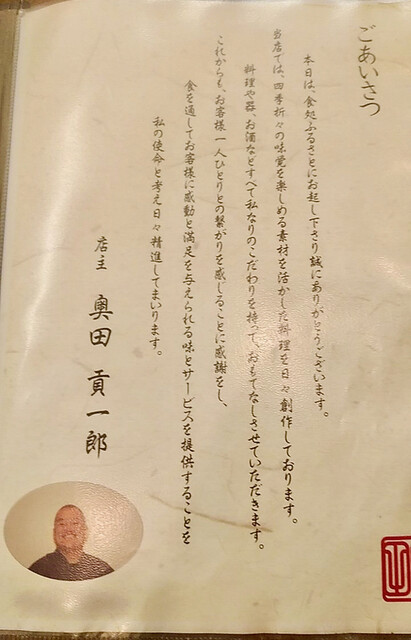 ごあいさつ
本日は、食処ふるさとにお起し下さり誠にありがとうございます。
当店では、四季折々の味覚を楽しめる素材を活かした料理を日々創作しております。
料理や器、お酒などすべて私なりのこだわりを持って、おもてなしさせていただきます。
これからも、お客様一人ひとりとの繋がりを感じることに感謝をし、
食を通してお客様に感動と満足を与えられる味とサービスを提供することを
私の使命と考え日々精進してまいります。
店主 奥田 貢一郎